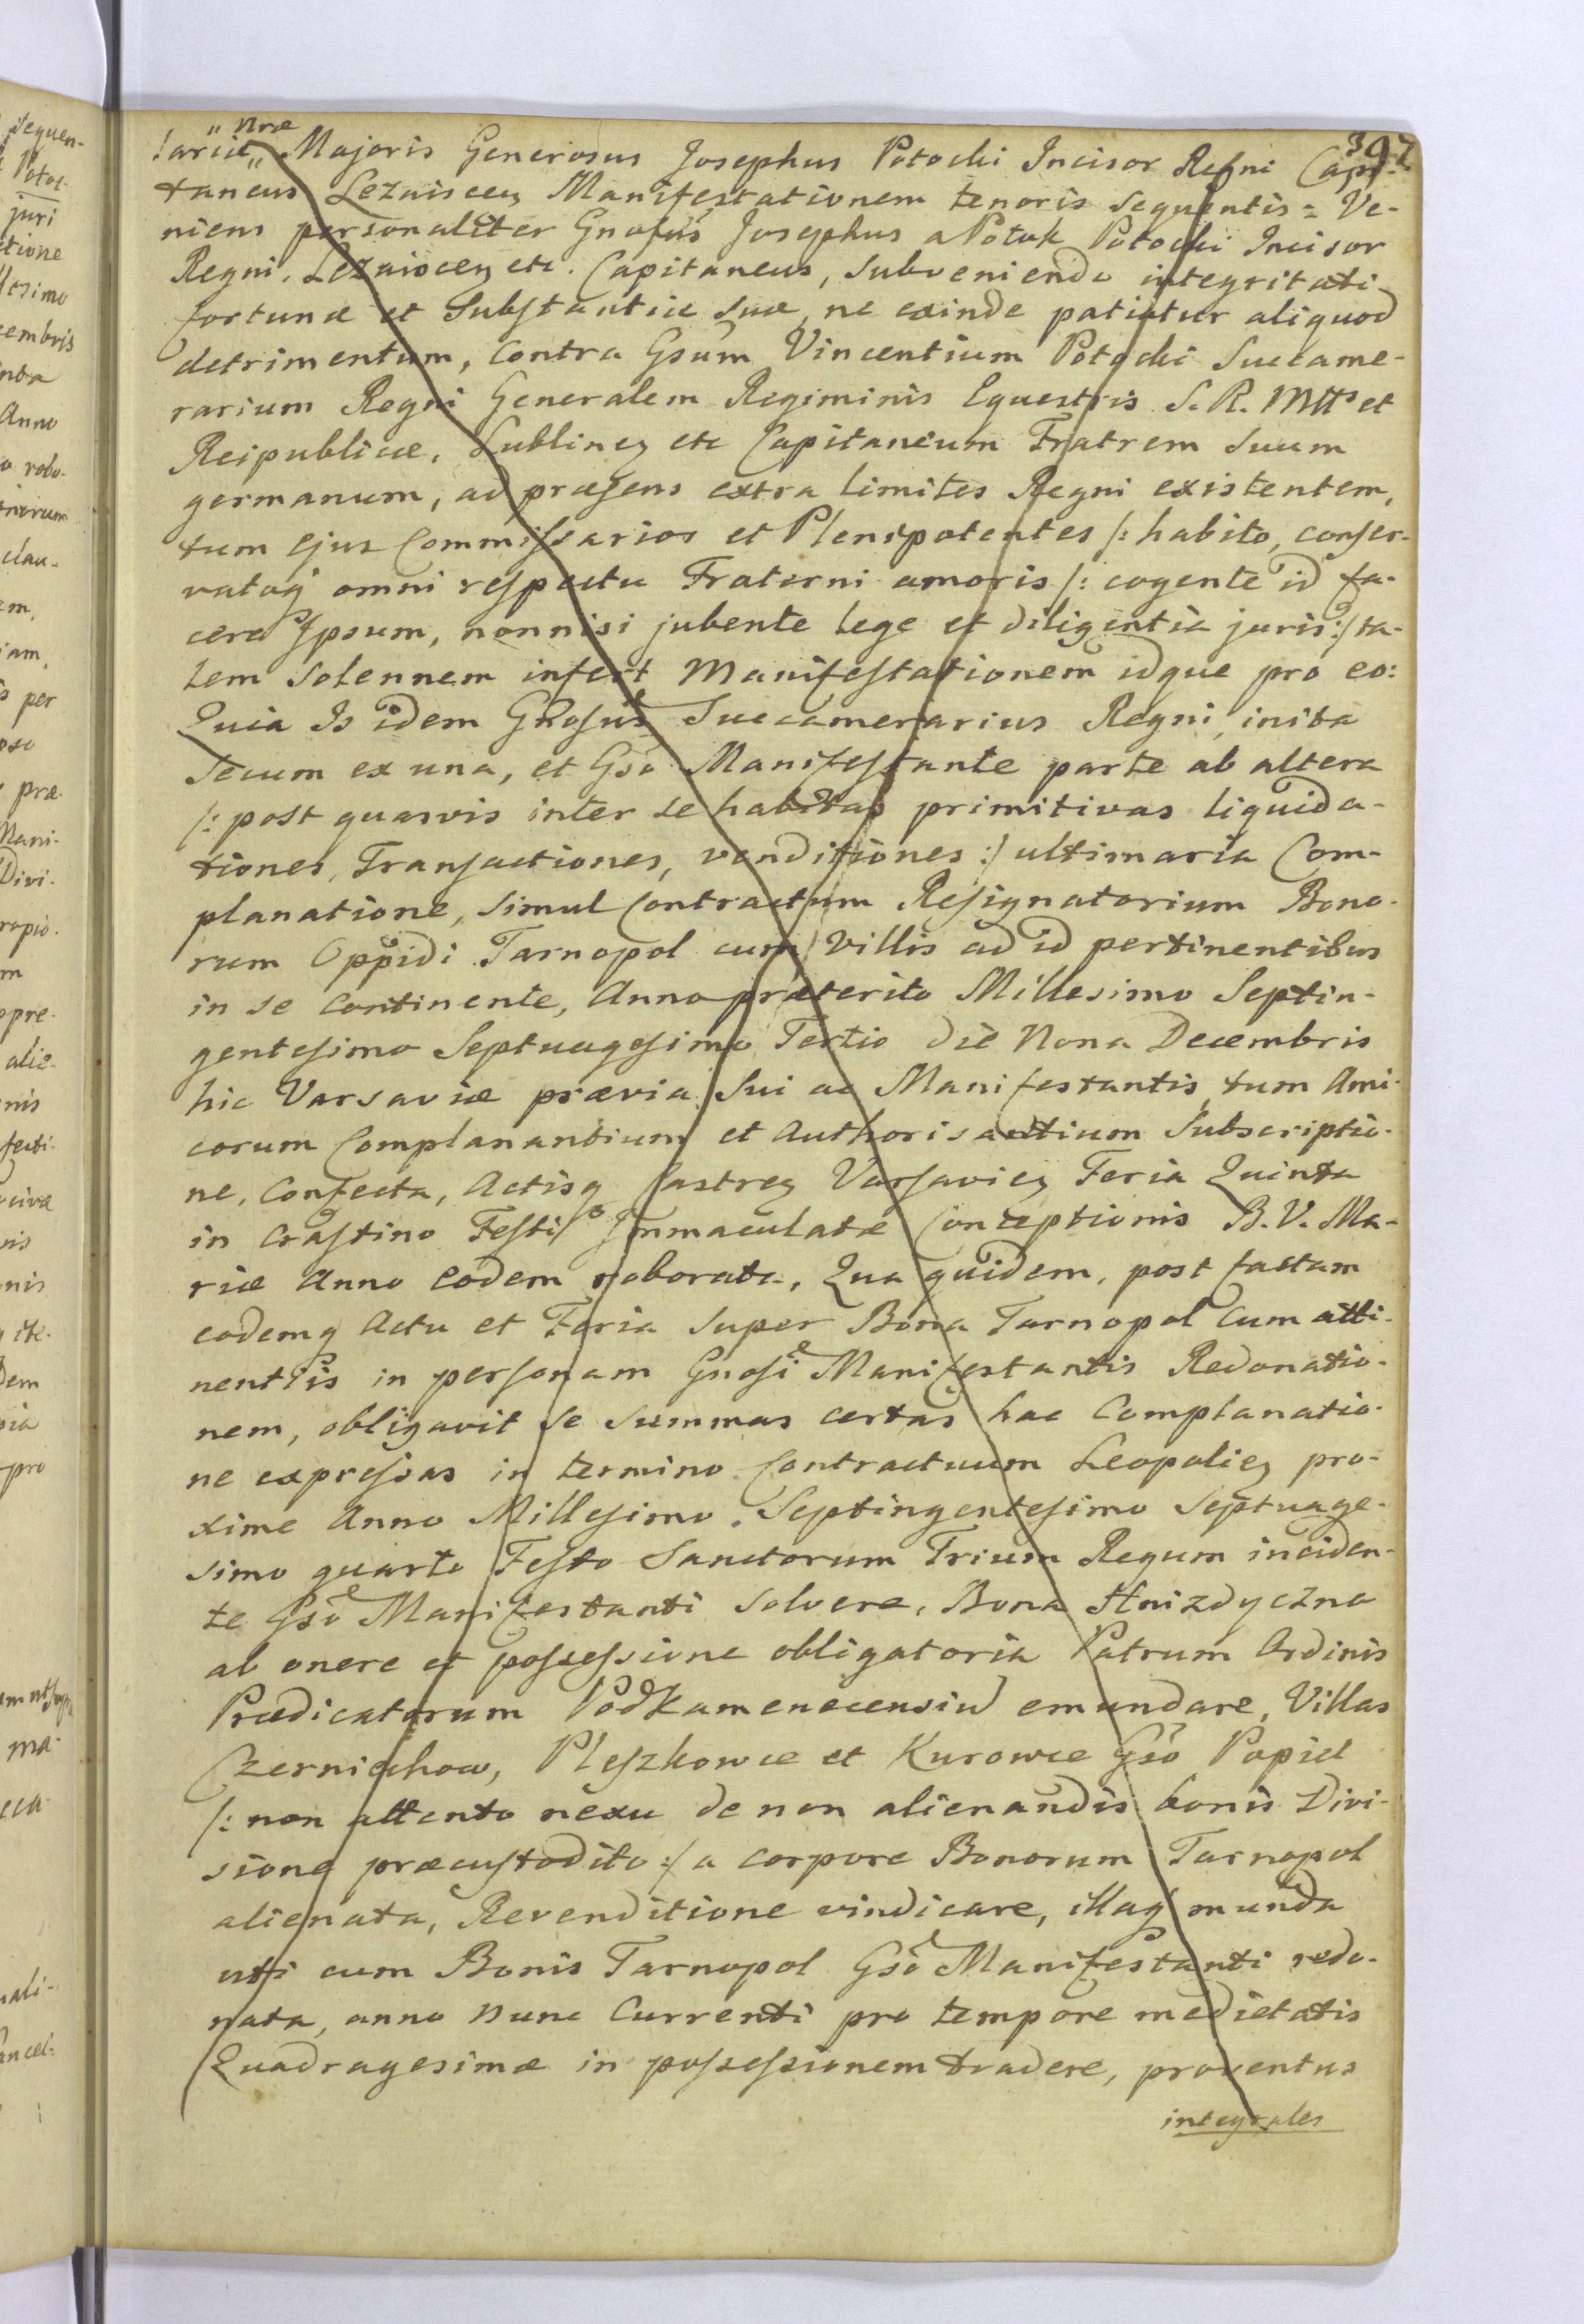 397
"Nræ
lariæ„ Majoris Generosus Josephus Potocki Incisor Regni Capi-
taneus Lezaiscen Manifestationem tenoris sequentis = Ve-
niens personaliter Gnosus Josephus a Potok Potocki Incisor
Regni, Lezaiscen etc. Capitaneus, subveniendo integritati
fortunæ et Substantiæ suæ, ne exinde patiatur aliquod
detrimentum, contra Gsum Vincentium Potocki Succame-
rarium Regni Generalem Regiminis Equestris S. R. Mtts et
Reipublicæ, Lublinen etc Capitaneum Fratrem suum
germanum, ad præsens extra limites Regni existentem,
tum ejus Commissarios et Plenipotentes /: habito, conser-
vatoq omni respectu Fraterni amoris /: cogente id fa-
cere Ipsum, nonnisi jubente lege et diligentia juris :/ ta-
lem solennem infert Manifestationem idque pro eo:
Quia Is idem GRosus Succamerarius Regni, inita
secum ex una, et Gso Manifestante parte ab altera
/: post quasvis inter se habitas primitivas liquida-
tiones, Transactiones, venditiones :/ ultimaria Com-
planatione, simul Contractum Resignatorium Bono-
rum Oppidi Tarnopol cum Villis ad id pertinentibus
in se continente, Anno præterito Millesimo Septin-
gentesimo Septuagesimo Tertio die Nona Decembris
hic Varsaviæ prævia Sui ac Manifestantis, tum Ami-
corum Complanantium et Authorisantium Subscriptio-
ne, Confecta, Actisq Castren Varsavien Feria Quinta
in Crastino Festi Immaculatæ Conceptionis B. V. Ma-
riæ Anno eodem roborata, Qua quidem, post factam
eodemq Actu et Feria super Bona Tarnopol cum atti-
nentiis in personam Gnosi Manifestantis Redonatio-
nem, obligavit se summas certas hac Complanatio-
ne expressas in termino Contractuum Leopolien pro-
xime Anno Millesimo Septingentesimo Septuage-
simo quarto Festo Sanctorum Trium Regum inciden-
te Gso Manifestanti solvere, Bona Hnizdyczna
ab onere et possessione obligatoria Patrum Ordinis
Prædicatorum Podkamenecensiu emundare, Villas
Czerniechow, Pleszkowce et Kurowce Gso Popiel
/: non attento nexu de non alienandis bonis Divi-
sione præcustodito :/ a corpore Bonorum Tarnopol
alienata, Revenditione vindicare, illaq munda
uti cum Bonis Tarnopol Gso Manifestanti redo-
nata, anno nunc Currenti pro tempore medietatis
Quadragesimæ in possessionem tradere, proventus
integrales